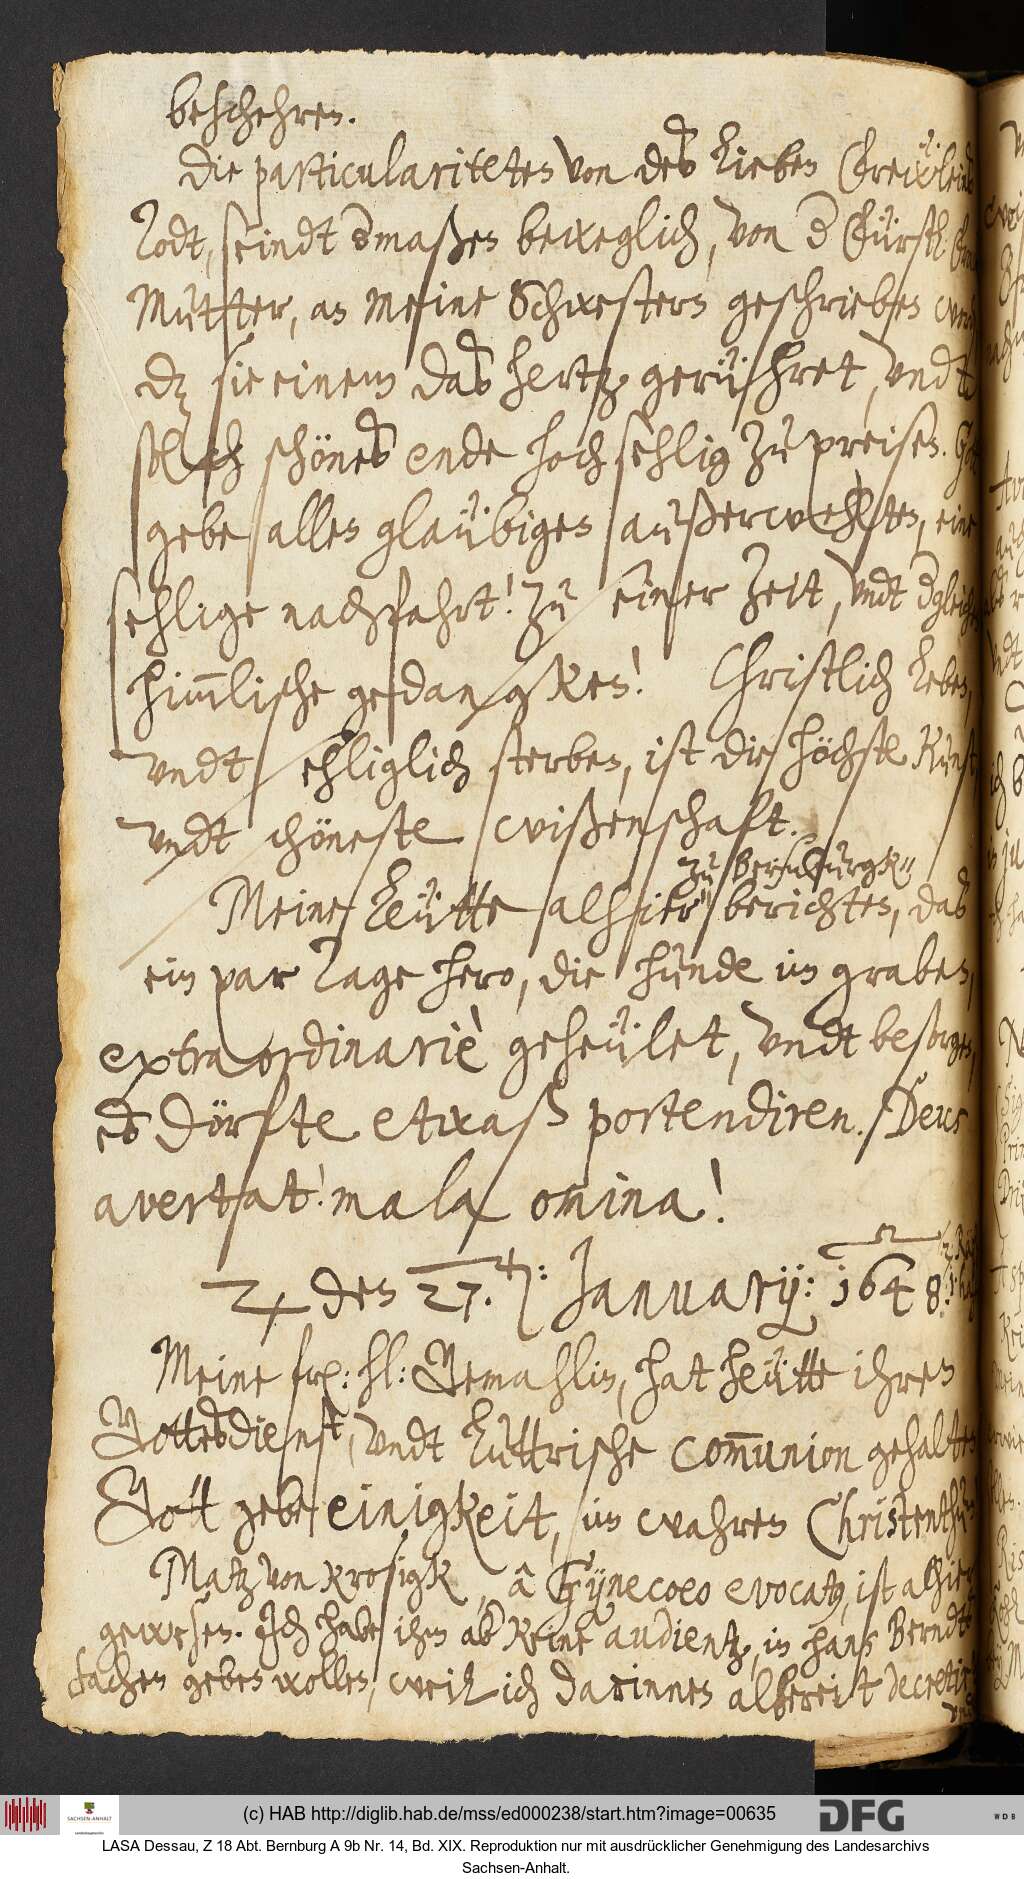 beschehren.
Die particulariteten von des lieben Frewleins
Todt, seindt dermaßen beweglich, von der Fürstl. Fraw
Mutter, an meine Schwestern geschrieben worden
dz sie einem das hertz gerühret, vndt
solch schönes ende hoch sehlig zu preisen. Gott
gebe allen glaübigen außerwehlten, eine
sehlige nachfahrt! zu seiner zeit, vndt dergleichen
himmlische gedangken! Christlich leben,
vndt sehliglich sterben, ist die höchste Kunst
vndt schönste wißenschaft.
zu Bernburgk
Meine Leütte alhier berichten, das
ein par Tage hero, die hunde im graben,
extraordinariè geheület, vndt besorgen,
es dörfte etwaß portendiren. Deus
avertat! mala omina!
♃ den 27. Januarij: 1648.
Meine fr: hl: Gemahlin, hat heütte ihren
Gottesdienst, vndt Luttrische communion gehalten
Gott gebe einigkeit, im wahren Christenthum
Matz von Krosigk, â Gynecoeo evocatus, ist alhier
gewesen. Jch habe ihm aber keine audientz, in Hans Berndts
sachen geben wollen, weil ich darinnen albereit decretirt
vnd
(c) HAB http://diglib.hab.de/mss/ed000238/start.htm?image=00635
SACHSEN-ANHALT
DFG
WDB
LASA Dessau, Z 18 Abt. Bernburg A 9b Nr. 14, Bd. XIX. Reproduktion nur mit ausdrücklicher Genehmigung des Landesarchivs
Sachsen-Anhalt.